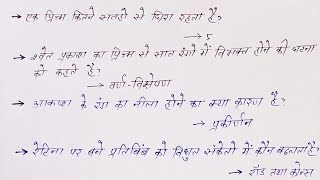 → एक प्रिज्म कितने सतहो से घिरा रहता है?
→ 5
→ श्वेत प्रकाश का प्रिज्म से सात रंगो में विभक्त होने की घटना
को कहते है?
→ वर्ण-विक्षेपण
→ आकाश के रंग का नीला होने का क्या कारण है?
→ प्रकीर्णन
→ रेटिना पर बने प्रतिबिंब को विधुत संकेतो में कौन बदलता है?
→ रॉड तथा कोन्स